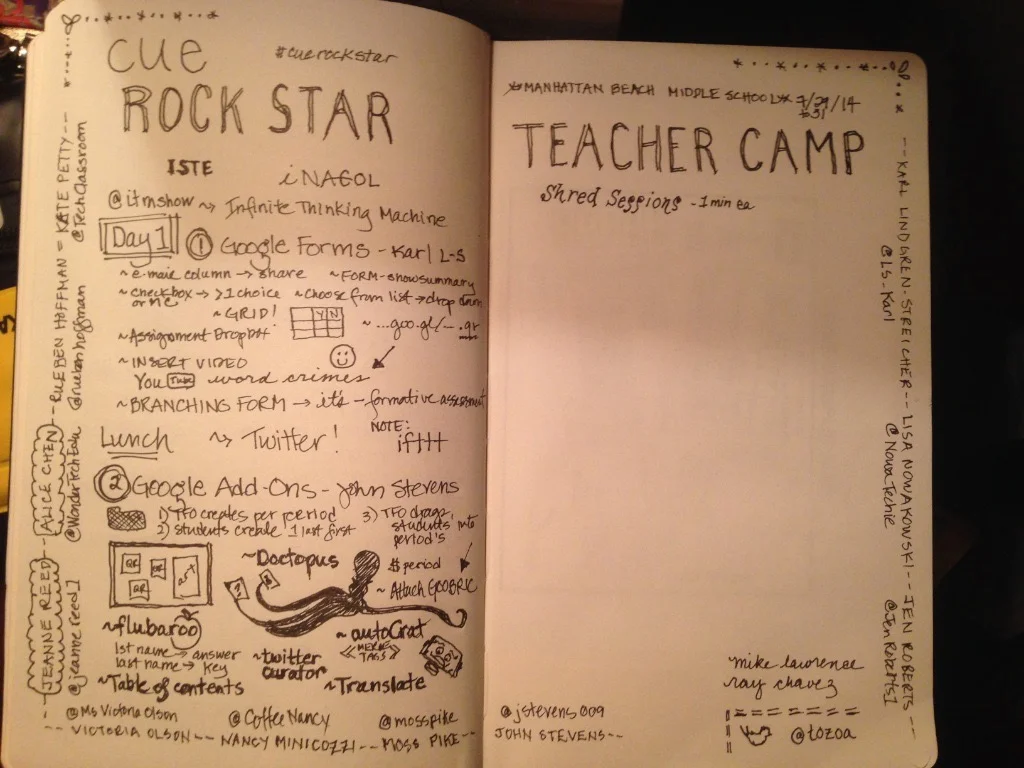 cue
#cuerockstar
ROCK STAR
ISTE
iNACOL
@itmshow ~> Infinite Thinking Machine
Day 1
① Google Forms - Karl L-S
~ e-mail column → share ~ FORM - show summary
~ checkbox → >1 choice ~ choose from list → drop down
or MC
~ GRID!
Y N
~ Assignment DropBox
~ ...goo.gl/-- .qr
~ INSERT VIDEO
You Tube word crimes
~ BRANCHING FORM → it's - formative assessment
Lunch ~> Twitter!
NOTE:
ifttt
② Google Add-Ons - John Stevens
1) TFO creates per period
2) students create 1 last first
3) TFO drags
students into
period's
QR
QR
QR
art
~ Doctopus
$ period
~ Attach GOOBRIC
~ flubaroo
1st name → answer
last name → key
~ autoCrat
<<MERGE
TAGS>>
~ twitter
curator
~ Table of contents
~ Translate
@MsVictoriaOlson
@CoffeeNancy
@mosspike
-- VICTORIA OLSON -- NANCY MINICOZZI -- MOSS PIKE --
-- JEANNE REED -- ALICE CHEN -- RUEBEN HOFFMAN = KATE PETTY --
@jeannereed1
@WonderTechEdu
@ruebenhoffman
@TechClassroom
*MANHATTAN BEACH MIDDLE SCHOOL* 7/29/14
to 31
TEACHER CAMP
Shred Sessions - 1 min ea
-- KARL LINDGREN-STREICHER -- LISA NOWAKOWSKI -- JEN ROBERTS --
@LS_Karl
@NowaTechie
@JenRoberts1
mike lawrence
ray chavez
@jstevens009
JOHN STEVENS --
@tozoa